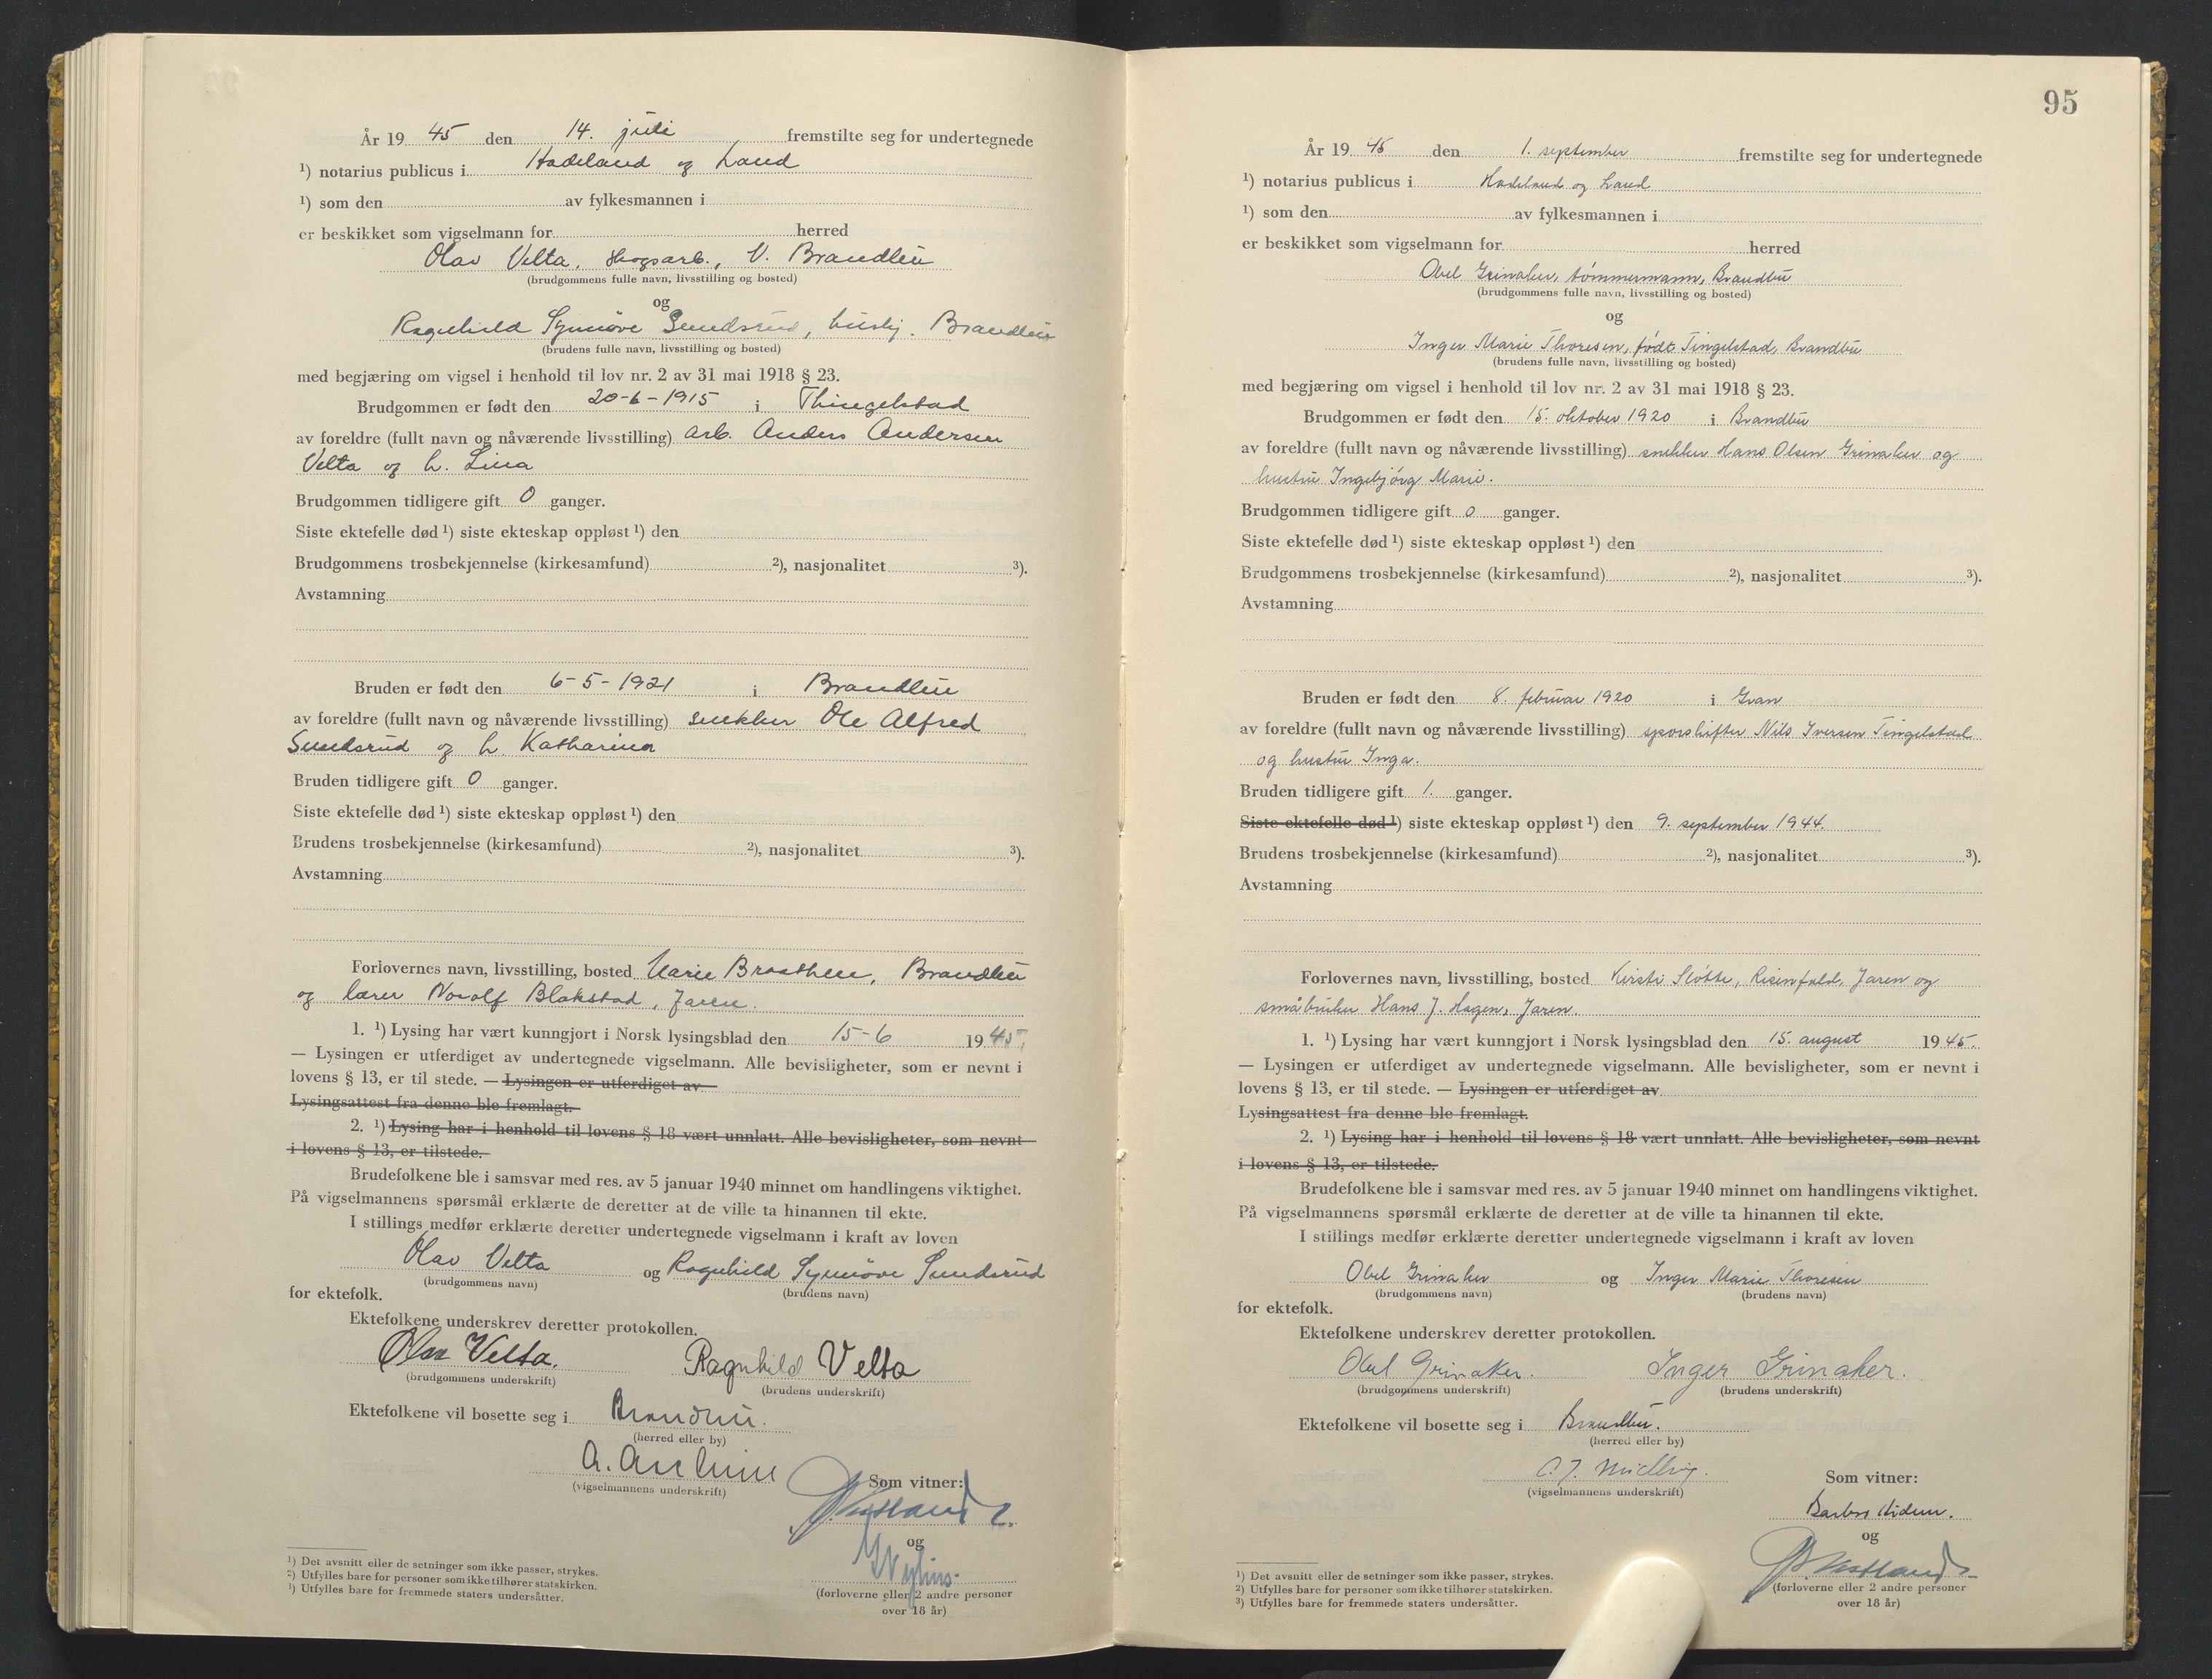 År 19 45 den 14. juli fremstilte seg for undertegnede
¹) notarius publicus i Hadeland og Land
¹) som den av fylkesmannen i
er beskikket som vigselmann for herred
Olav Velta, skogsarb., V. Brandbu
(brudgommens fulle navn, livsstilling og bosted)
og
Ragnhild Synnøve Sundsrud, hushj. Brandbu
(brudens fulle navn, livsstilling og bosted)
med begjæring om vigsel i henhold til lov nr. 2 av 31 mai 1918 § 23.
Brudgommen er født den 20-6-1915 i Thingelstad
av foreldre (fullt navn og nåværende livsstilling) arb. Anders Andersen
Velta og h. Lina
Brudgommen tidligere gift 0 ganger.
Siste ektefelle død ¹) siste ekteskap oppløst ¹) den
Brudgommens trosbekjennelse (kirkesamfund) ²), nasjonalitet ³).
Avstamning
Bruden er født den 6-5-1921 i Brandbu
av foreldre (fullt navn og nåværende livsstilling) snekker Ole Alfred
Sundsrud og h. Katharina
Bruden tidligere gift 0 ganger.
Siste ektefelle død ¹) siste ekteskap oppløst ¹) den
Brudens trosbekjennelse (kirkesamfund) ²), nasjonalitet ³).
Avstamning
Forlovernes navn, livsstilling, bosted Marie Braathen, Brandbu
og lærer Norolf Blakstad, Jaren.
1. ¹) Lysing har vært kunngjort i Norsk lysingsblad den 15-6 19 45.
— Lysingen er utferdiget av undertegnede vigselmann. Alle bevisligheter, som er nevnt i
lovens § 13, er til stede. — Lysingen er utferdiget av
Lysingsattest fra denne ble fremlagt.
2. ¹) Lysing har i henhold til lovens § 18 vært unnlatt. Alle bevisligheter, som nevnt
i lovens § 13, er tilstede.
Brudefolkene ble i samsvar med res. av 5 januar 1940 minnet om handlingens viktighet.
På vigselmannens spørsmål erklærte de deretter at de ville ta hinannen til ekte.
I stillings medfør erklærte deretter undertegnede vigselmann i kraft av loven
Olav Velta og Ragnhild Synnøve Sundsrud
(brudgommens navn) (brudens navn)
for ektefolk.
Ektefolkene underskrev deretter protokollen.
Olav Velta. Ragnhild Velta
(brudgommens underskrift) (brudens underskrift)
Ektefolkene vil bosette seg i Brandbu.
(herred eller by)
(vigselmannens underskrift)
Som vitner:
og
(forloverne eller 2 andre personer
over 18 år)
¹) Det avsnitt eller de setninger som ikke passer, strykes.
²) Utfylles bare for personer som ikke tilhører statskirken.
³) Utfylles bare for fremmede staters undersåtter.
95
År 19 45 den 1. september fremstilte seg for undertegnede
¹) notarius publicus i Hadeland og Land
¹) som den av fylkesmannen i
er beskikket som vigselmann for herred
Obel Grinaker, tømmermann, Brandbu
(brudgommens fulle navn, livsstilling og bosted)
og
Inger Marie Thoresen, født Tingelstad, Brandbu
(brudens fulle navn, livsstilling og bosted)
med begjæring om vigsel i henhold til lov nr. 2 av 31 mai 1918 § 23.
Brudgommen er født den 15. oktober 1920 i Brandbu
av foreldre (fullt navn og nåværende livsstilling) snekker Hans Olsen Grinaker og
hustru Ingebjørg Marie.
Brudgommen tidligere gift 0 ganger.
Siste ektefelle død ¹) siste ekteskap oppløst ¹) den
Brudgommens trosbekjennelse (kirkesamfund) ²), nasjonalitet ³).
Avstamning
Bruden er født den 8. februar 1920 i Gran
av foreldre (fullt navn og nåværende livsstilling) sporskifter Nils Iversen Tingelstad
og hustru Inga.
Bruden tidligere gift 1. ganger.
Siste ektefelle død ¹) siste ekteskap oppløst ¹) den 9. september 1944.
Brudens trosbekjennelse (kirkesamfund) ²), nasjonalitet ³).
Avstamning
Forlovernes navn, livsstilling, bosted Kirsti Sløtte, Risenfald, Jaren og
småbruker Hans J. Hagen, Jaren.
1. ¹) Lysing har vært kunngjort i Norsk lysingsblad den 15. august 19 45.
— Lysingen er utferdiget av undertegnede vigselmann. Alle bevisligheter, som er nevnt i
lovens § 13, er til stede. — Lysingen er utferdiget av
Lysingsattest fra denne ble fremlagt.
2. ¹) Lysing har i henhold til lovens § 18 vært unnlatt. Alle bevisligheter, som nevnt
i lovens § 13, er tilstede.
Brudefolkene ble i samsvar med res. av 5 januar 1940 minnet om handlingens viktighet.
På vigselmannens spørsmål erklærte de deretter at de ville ta hinannen til ekte.
I stillings medfør erklærte deretter undertegnede vigselmann i kraft av loven
Obel Grinaker og Inger Marie Thoresen
(brudgommens navn) (brudens navn)
for ektefolk.
Ektefolkene underskrev deretter protokollen.
Obel Grinaker. Inger Grinaker.
(brudgommens underskrift) (brudens underskrift)
Ektefolkene vil bosette seg i Brandbu.
(herred eller by)
(vigselmannens underskrift)
Som vitner:
og
(forloverne eller 2 andre personer
over 18 år)
¹) Det avsnitt eller de setninger som ikke passer, strykes.
²) Utfylles bare for personer som ikke tilhører statskirken.
³) Utfylles bare for fremmede staters undersåtter.